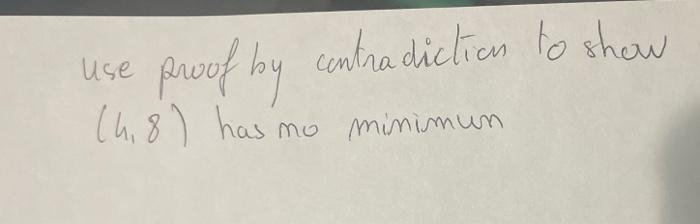 use proof by contradiction to show
(4, 8) has no minimum